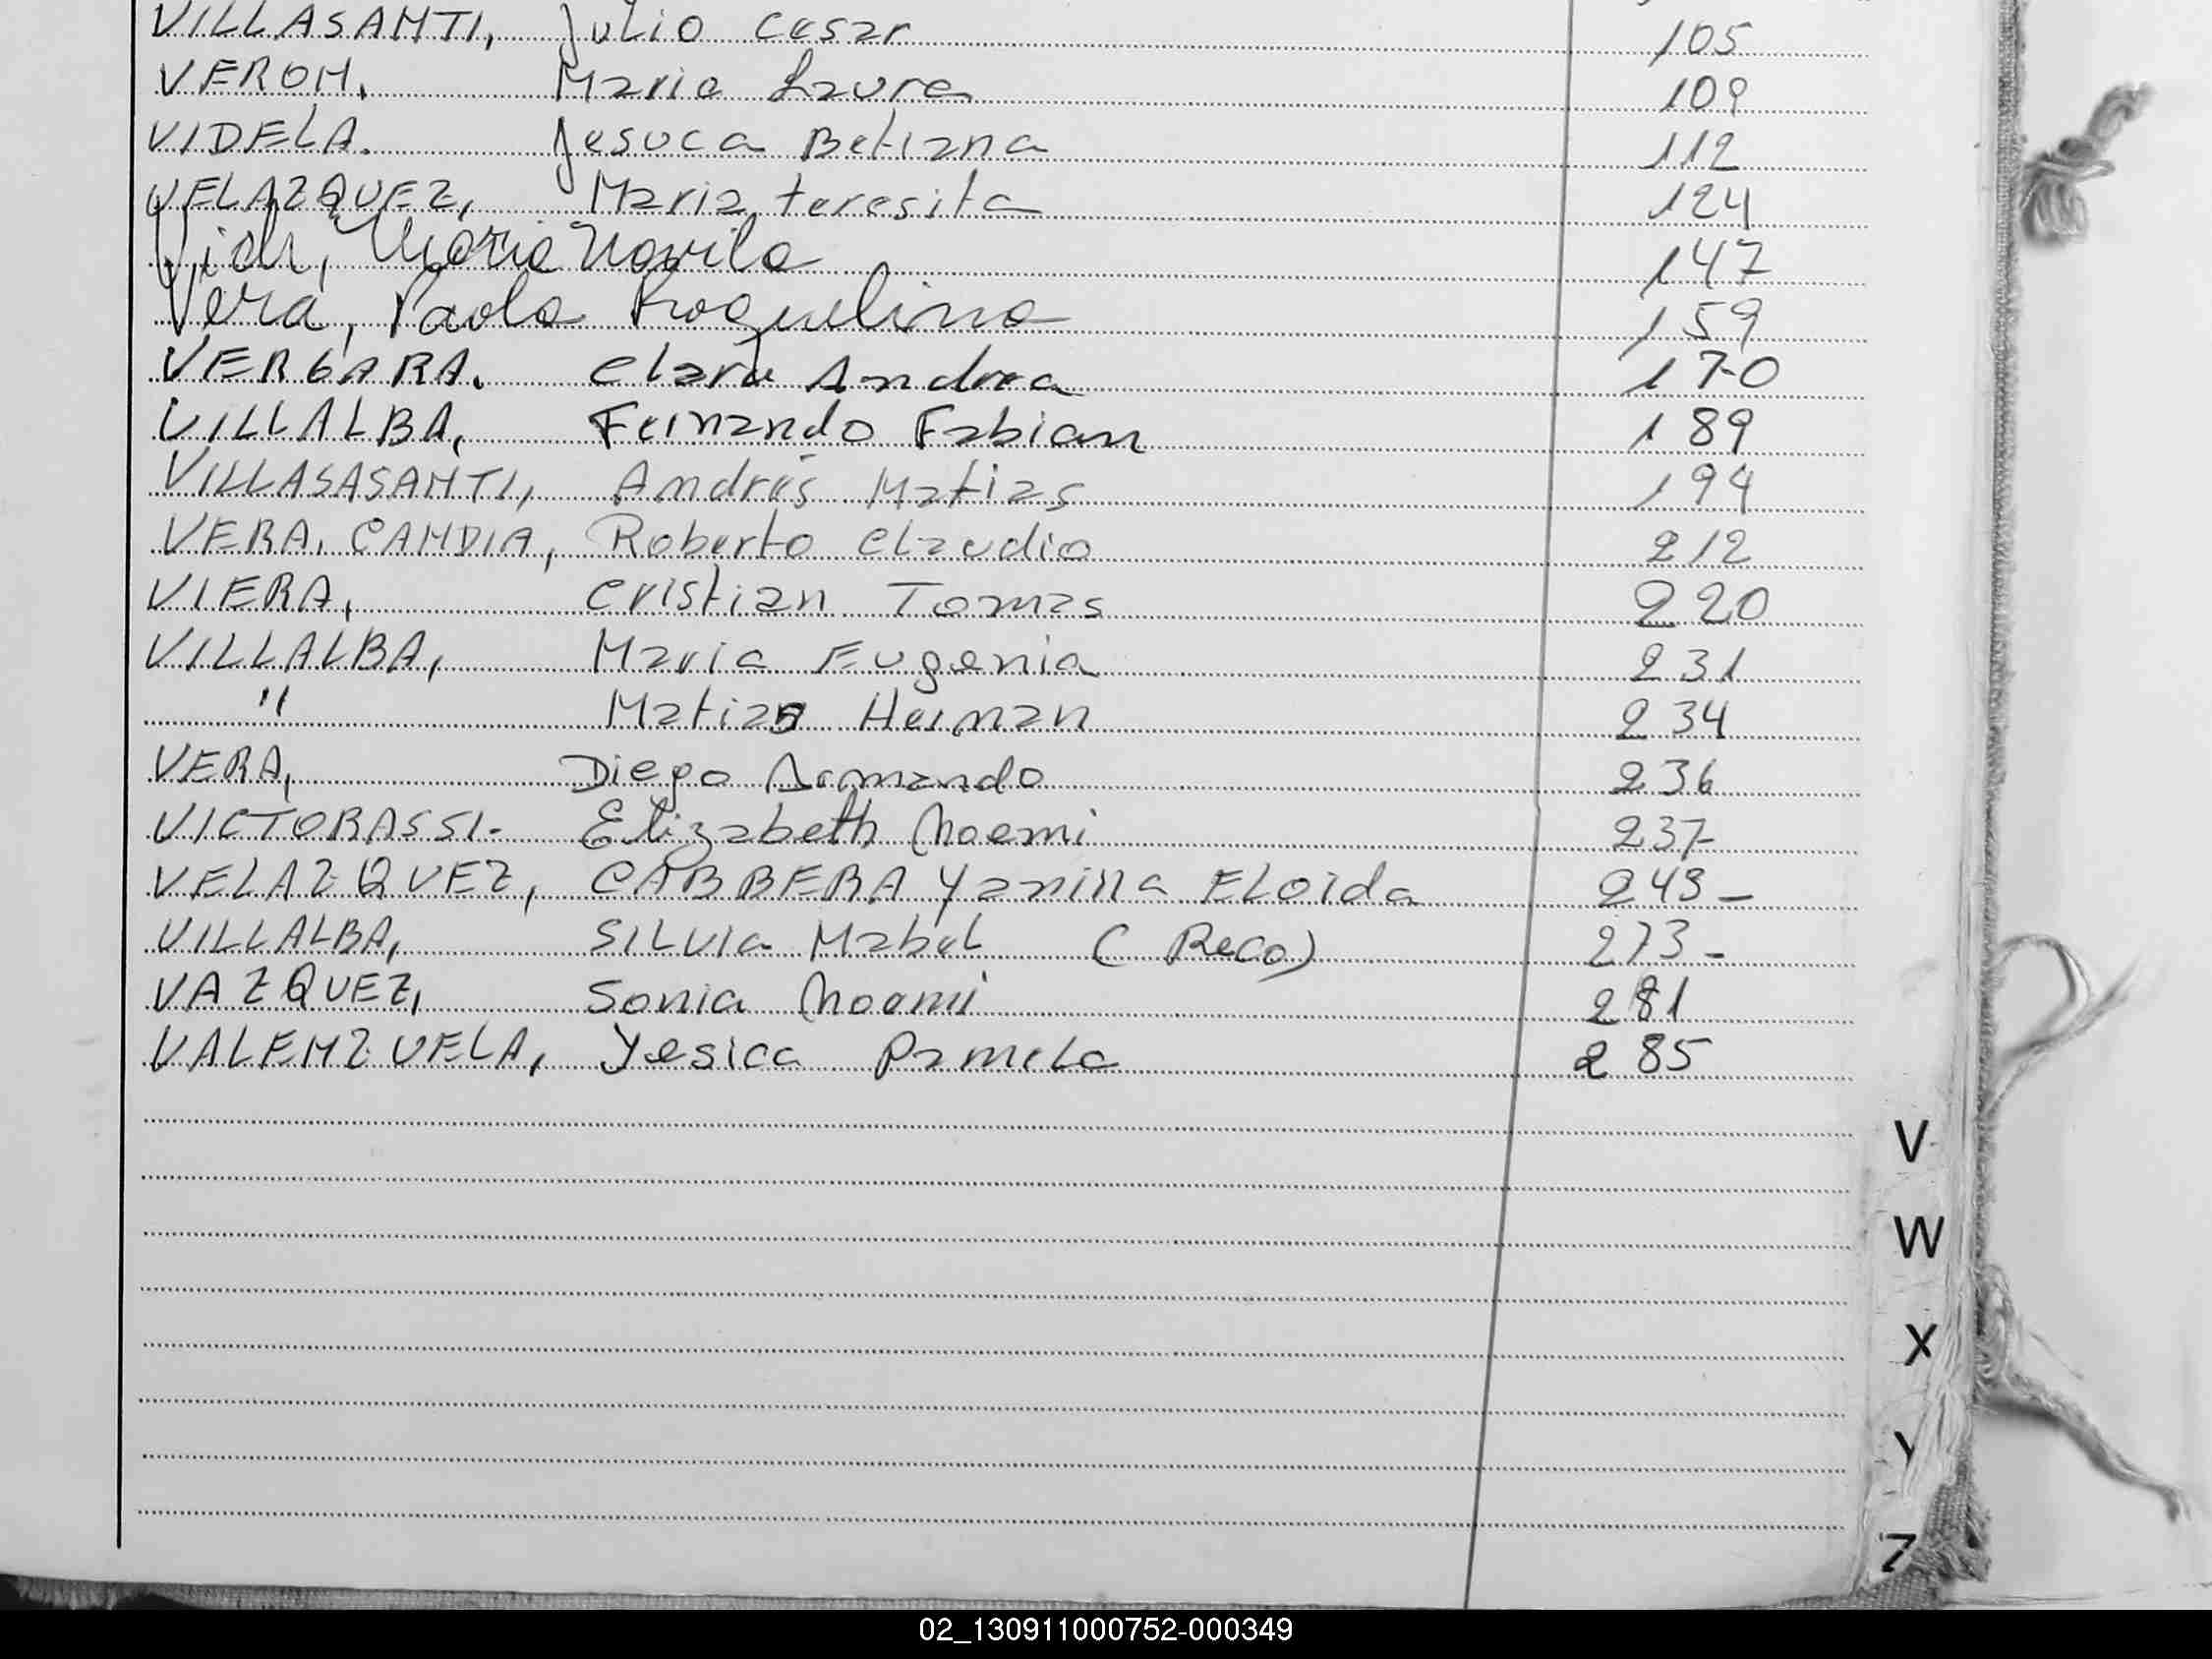 VILLASAMTI, Julio Cesar 105
VEROM, Maria Laura 109
VIDELA. Jesuca Betiana 112
VELAZQUEZ, Maria teresita 124
147
Vera, Paola Roquelina 159
VERGARA. Clara Andrea 170
VILLALBA, Fernando Fabian 189
VILLASASAMTI, Andrés Matias 194
VERA, CAMDIA, Roberto Claudio 212
VIERA, Cristian Tomas 220
VILLALBA, Maria Eugenia 231
" Matias Herman 234
VERA, Diego Armando 236
VICTORASSI- Elizabeth Noemi 237-
VELAZQUEZ, CABRERA Yanina ELoida 243-
VILLALBA, SILVIA Mabel (Reco) 273-
VAZQUEZ, Sonia Noemi 281
VALEMZUELA, Yesica Pamela 285
V
W
X
Y
Z
02_130911000752-000349